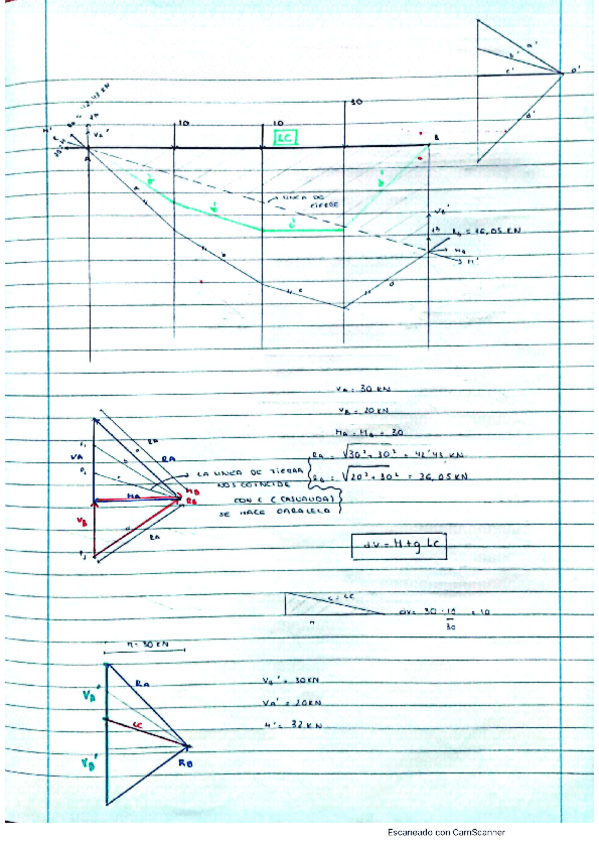 a'
b'
c'
d'
O'
30
10
10
LC
B
A
RA = 42'43 KN
VA
VA'
LINEA DE
TIERRA
VB'
VB
RB = 16,05 KN
HB
H'
a
b
c
d
VA = 30 KN
VB = 20 KN
HA = HB = 30
RA = √30² + 30² = 42'43 KN
RB = √20² + 30² = 36,05 KN
RA
VA
RA
HA
HB
RB
VB
RA
LA LINEA DE TIERRA
NOS COINCIDE
CON C (ASUMIDA)
SE HACE PARALELA
ΔV = H + g LC
C = LC
H
ΔV = 30 · 10/30 = 10
H = 30 KN
RA
VA'
LC
VB'
RB
VB' = 30KN
VA' = 20KN
H' = 32KN
Escaneado con CamScanner